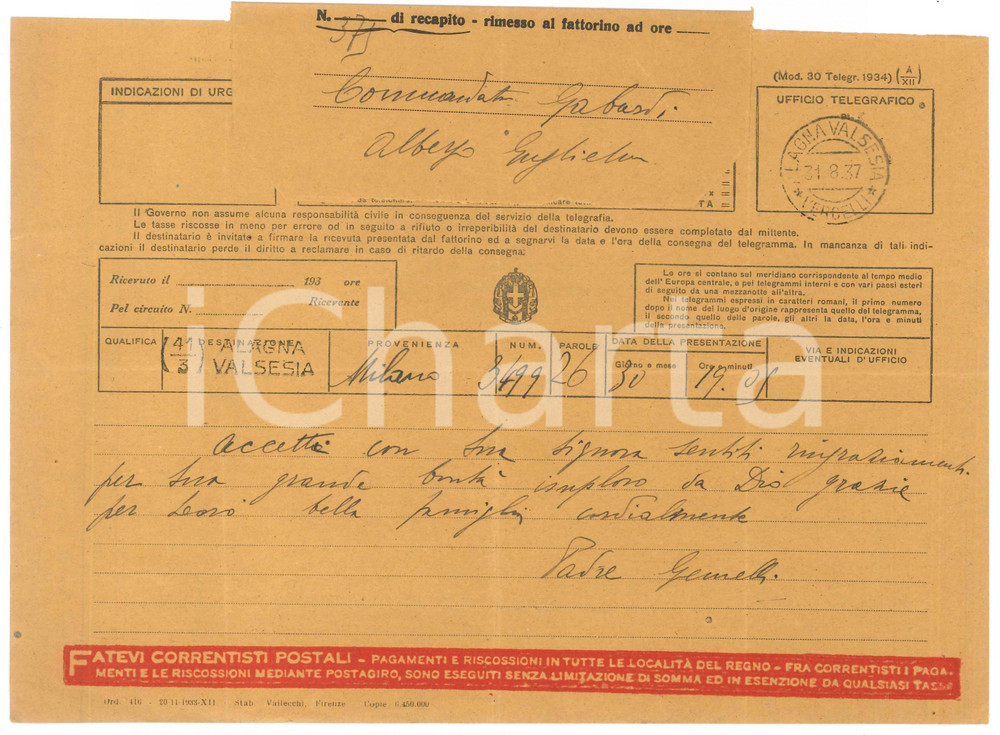 N. 375 di recapito - rimesso al fattorino ad ore
Commendat. Gabardi
Albergo Guglielm
(Mod. 30 Telegr. 1934) (A/XII)
INDICAZIONI DI URG
UFFICIO TELEGRAFICO
ALAGNA VALSESIA
31.8.37
* VERCELLI *
Il Governo non assume alcuna responsabilità civile in conseguenza del servizio della telegrafia.
Le tasse riscosse in meno per errore od in seguito a rifiuto o irreperibilità del destinatario devono essere completate dal mittente.
Il destinatario è invitato a firmare la ricevuta presentata dal fattorino ed a segnarvi la data e l'ora della consegna del telegramma. In mancanza di tali indi-
cazioni il destinatario perde il diritto a reclamare in caso di ritardo della consegna.
Ricevuto il 193 ore
Pel circuito N. Ricevente
Le ore si contano sul meridiano corrispondente al tempo medio
dell'Europa centrale, e pei telegrammi interni e con vari paesi esteri
di seguito da una mezzanotte all'altra.
Nei telegrammi espressi in caratteri romani, il primo numero
dopo il nome del luogo d'origine rappresenta quello del telegramma,
il secondo quello delle parole, gli altri la data, l'ora e minuti
della presentazione.
QUALIFICA DESTINAZIONE PROVENIENZA NUM. PAROLE DATA DELLA PRESENTAZIONE VIA E INDICAZIONI
EVENTUALI D'UFFICIO
Giorno e mese Ore e minuti
(41/3) ALAGNA
VALSESIA
Milano 3499 26 30 19.05
iCharta
Accetti con sua signora sentiti ringraziamenti
per sua grande bontà imploro da Dio grazie
per bella famiglia cordialmente
Padre Gemelli
FATEVI CORRENTISTI POSTALI - PAGAMENTI E RISCOSSIONI IN TUTTE LE LOCALITÀ DEL REGNO - FRA CORRENTISTI I PAGA-
MENTI E LE RISCOSSIONI MEDIANTE POSTAGIRO, SONO ESEGUITI SENZA LIMITAZIONE DI SOMMA ED IN ESENZIONE DA QUALSIASI TASSA
Ord. 416 - 20-11-1933-XII - Stab. Vallecchi, Firenze Copie 6.450.000